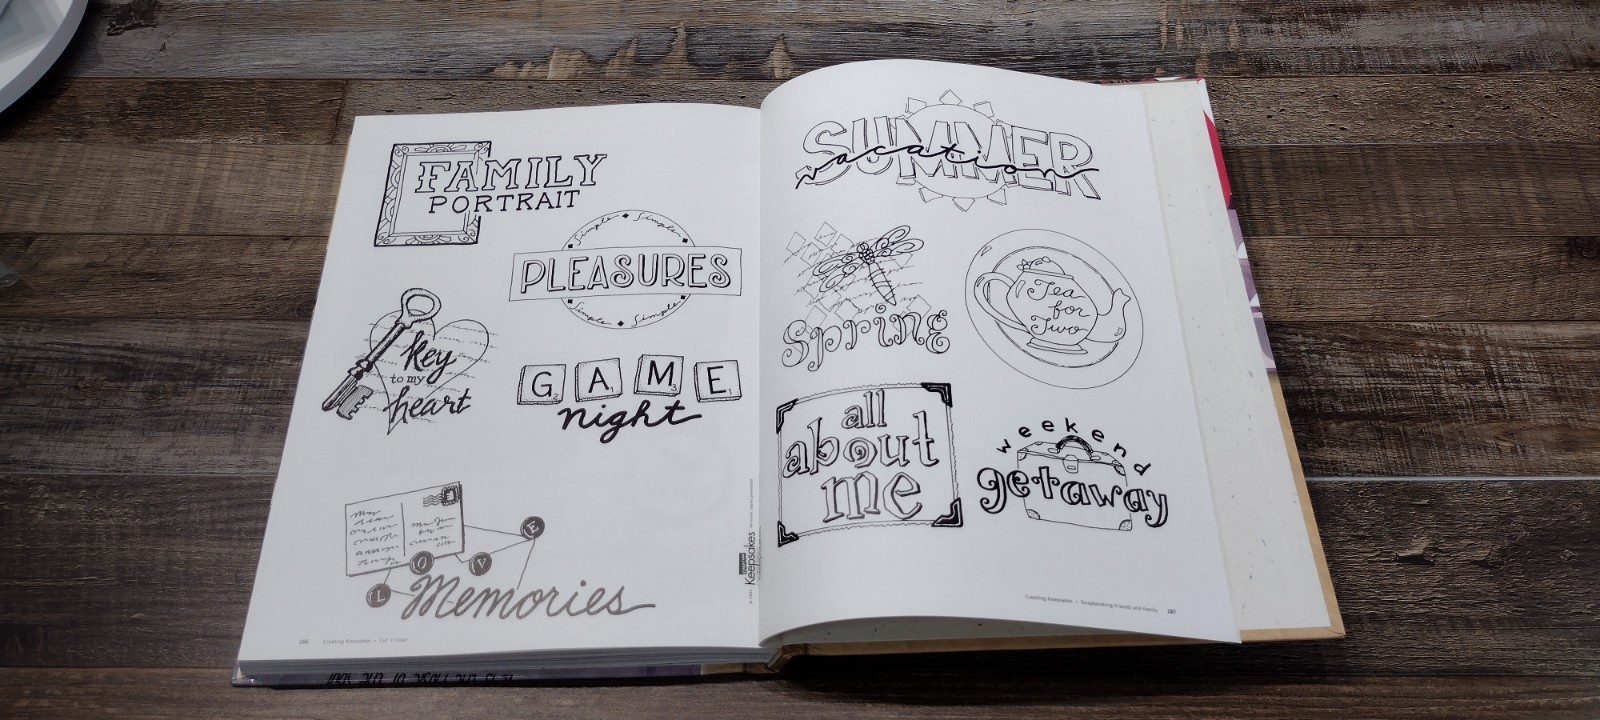 FAMILY
PORTRAIT
Simple Simple
PLEASURES
Simple Simple
key
to my
heart
G A M E
night
L O V E
Memories
Keepsakes
286 Creating Keepsakes • Cut 'n Copy
SUMMER
vacation
Spring
Tea
for
Two
all
about
me
weekend
getaway
Creating Keepsakes • Scrapbooking Friends and Family 287